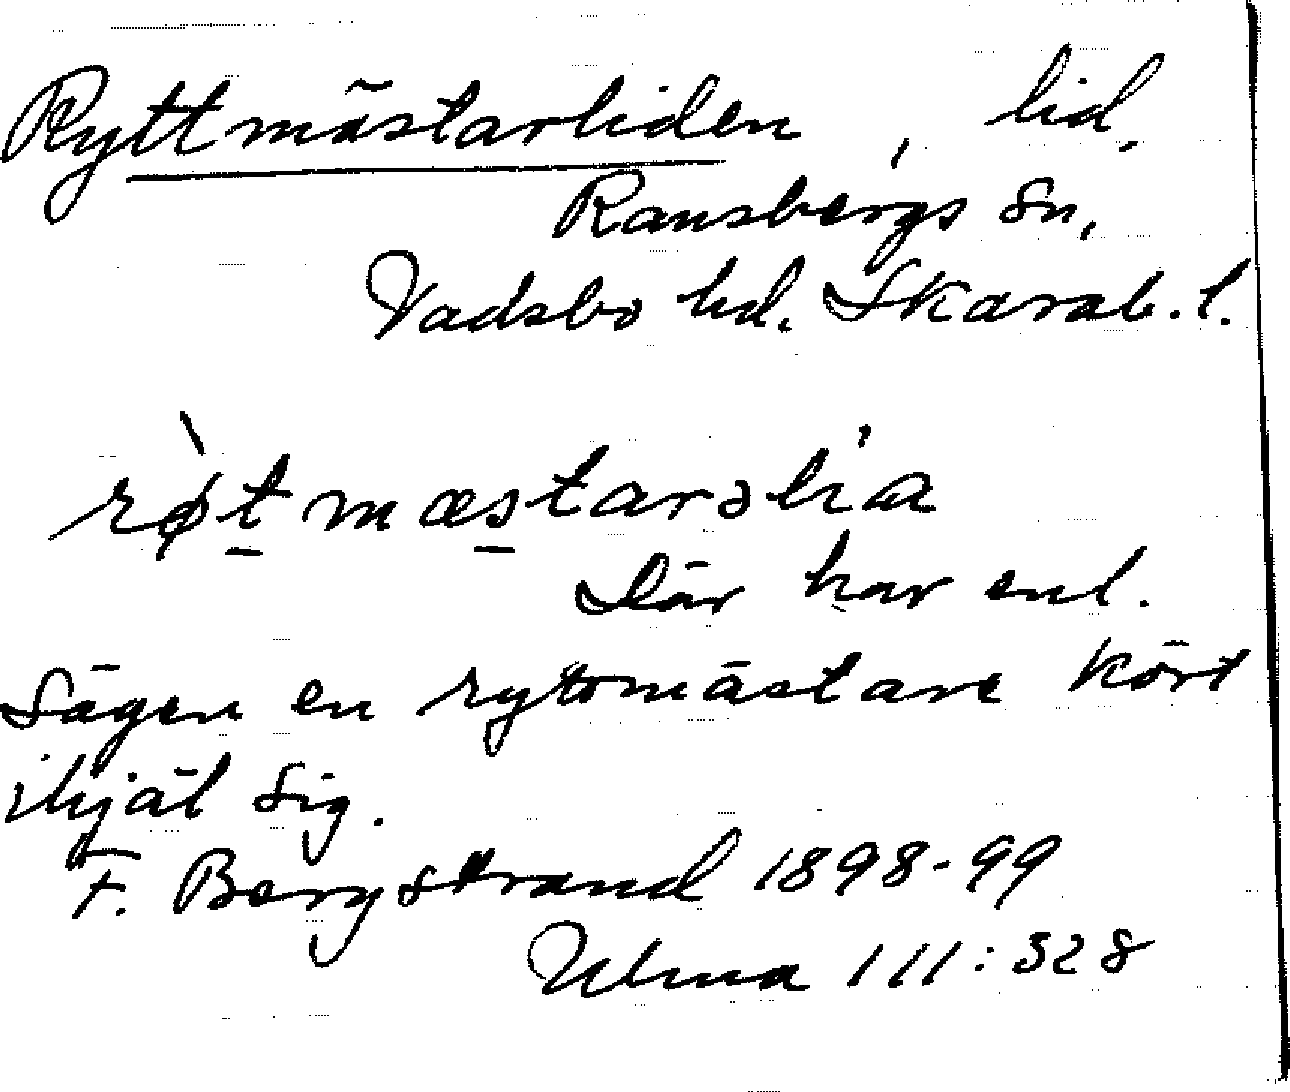 Ryttmästarliden, lid.
Ransbergs Sn,
Vadsbo hd. Skarab. l.
røtmæstarəlia
Där har enl.
Sägen en ryttmästare kört
ihjäl sig.
F. Bergstrand 1898-99
Ulma 111:528